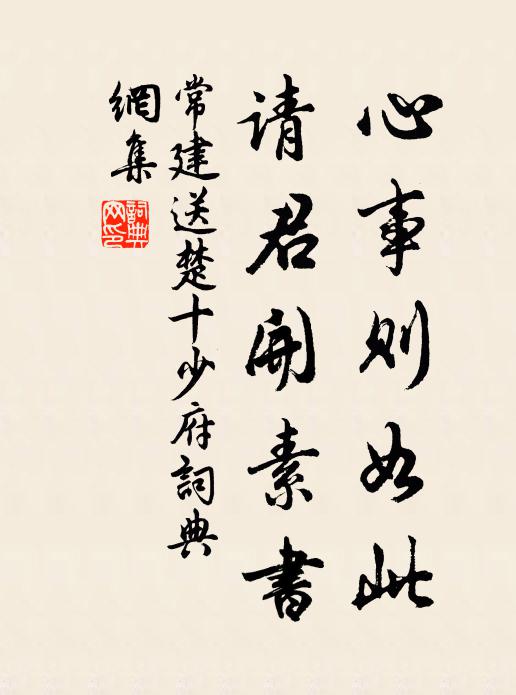 心事则如此
请君开素書
常建送楚十少府詞典
網集
詞典网印